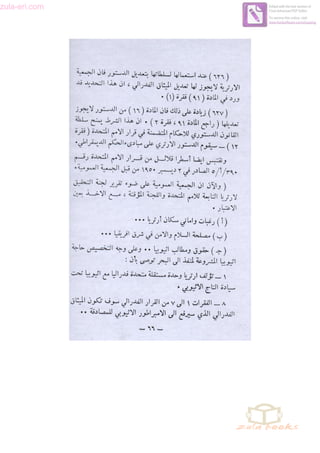 zula-eri.com
(٦٣٦) عند استعمالها لسلطاتها بتعديل الدستور فان الجمعية
الارترية لا يجوز لها تعديل الميثاق الفدرالي ، ان هذا التحديد قد
ورد في المادة (٩١) فقرة (١) .
(٦٣٧) زيادة على ذلك فان المادة (١٦) من الدستور لا يجوز
تعديلها ( راجع المادة ٩١ ، فقرة ٢) . ان هذا الشرط يمنح سلطة
القانون الدستوري للاحكام المتضمنة في قرار الامم المتحدة ( فقرة
١٢) ــ سيقوم الدستور الارتري على مبادىء الحكم الديمقراطي .
ونقتبس ايضا أسطرا قلائل من قرار الامم المتحدة رقم
٣٩٠/أ/٥ الصادر في ٢ ديسمبر ١٩٥٠ من قبل الجمعية العمومية .
( والآن ان الجمعية العمومية على ضوء تقرير لجنة التحقيق
لارتريا التابعة للامم المتحدة واللجنة المؤقتة ، مع الاخذ بعين
الاعتبار .
( أ ) رغبات واماني سكان أرتريا ...
( ب ) مصلحة السلام والامن في شرق افريقيا ...
( جـ ) حقوق ومطالب اثيوبيا .. وعلى وجه التخصيص حاجة
اثيوبيا المشروعة لمنفذ الى البحر توصى بأن :
١ ــ تؤلف ارتريا وحدة مستقلة متحدة فدراليا مع اثيوبيا تحت
سيادة التاج الاثيوبي .
٨ ــ الفقرات ١ الى ٧ من القرار الفدرالي سوف تكون الميثاق
الفدرالي الذي سيرفع الى الامبراطور الاثيوبي للمصادقة ..
ــ ٦٦ ــ
zula books